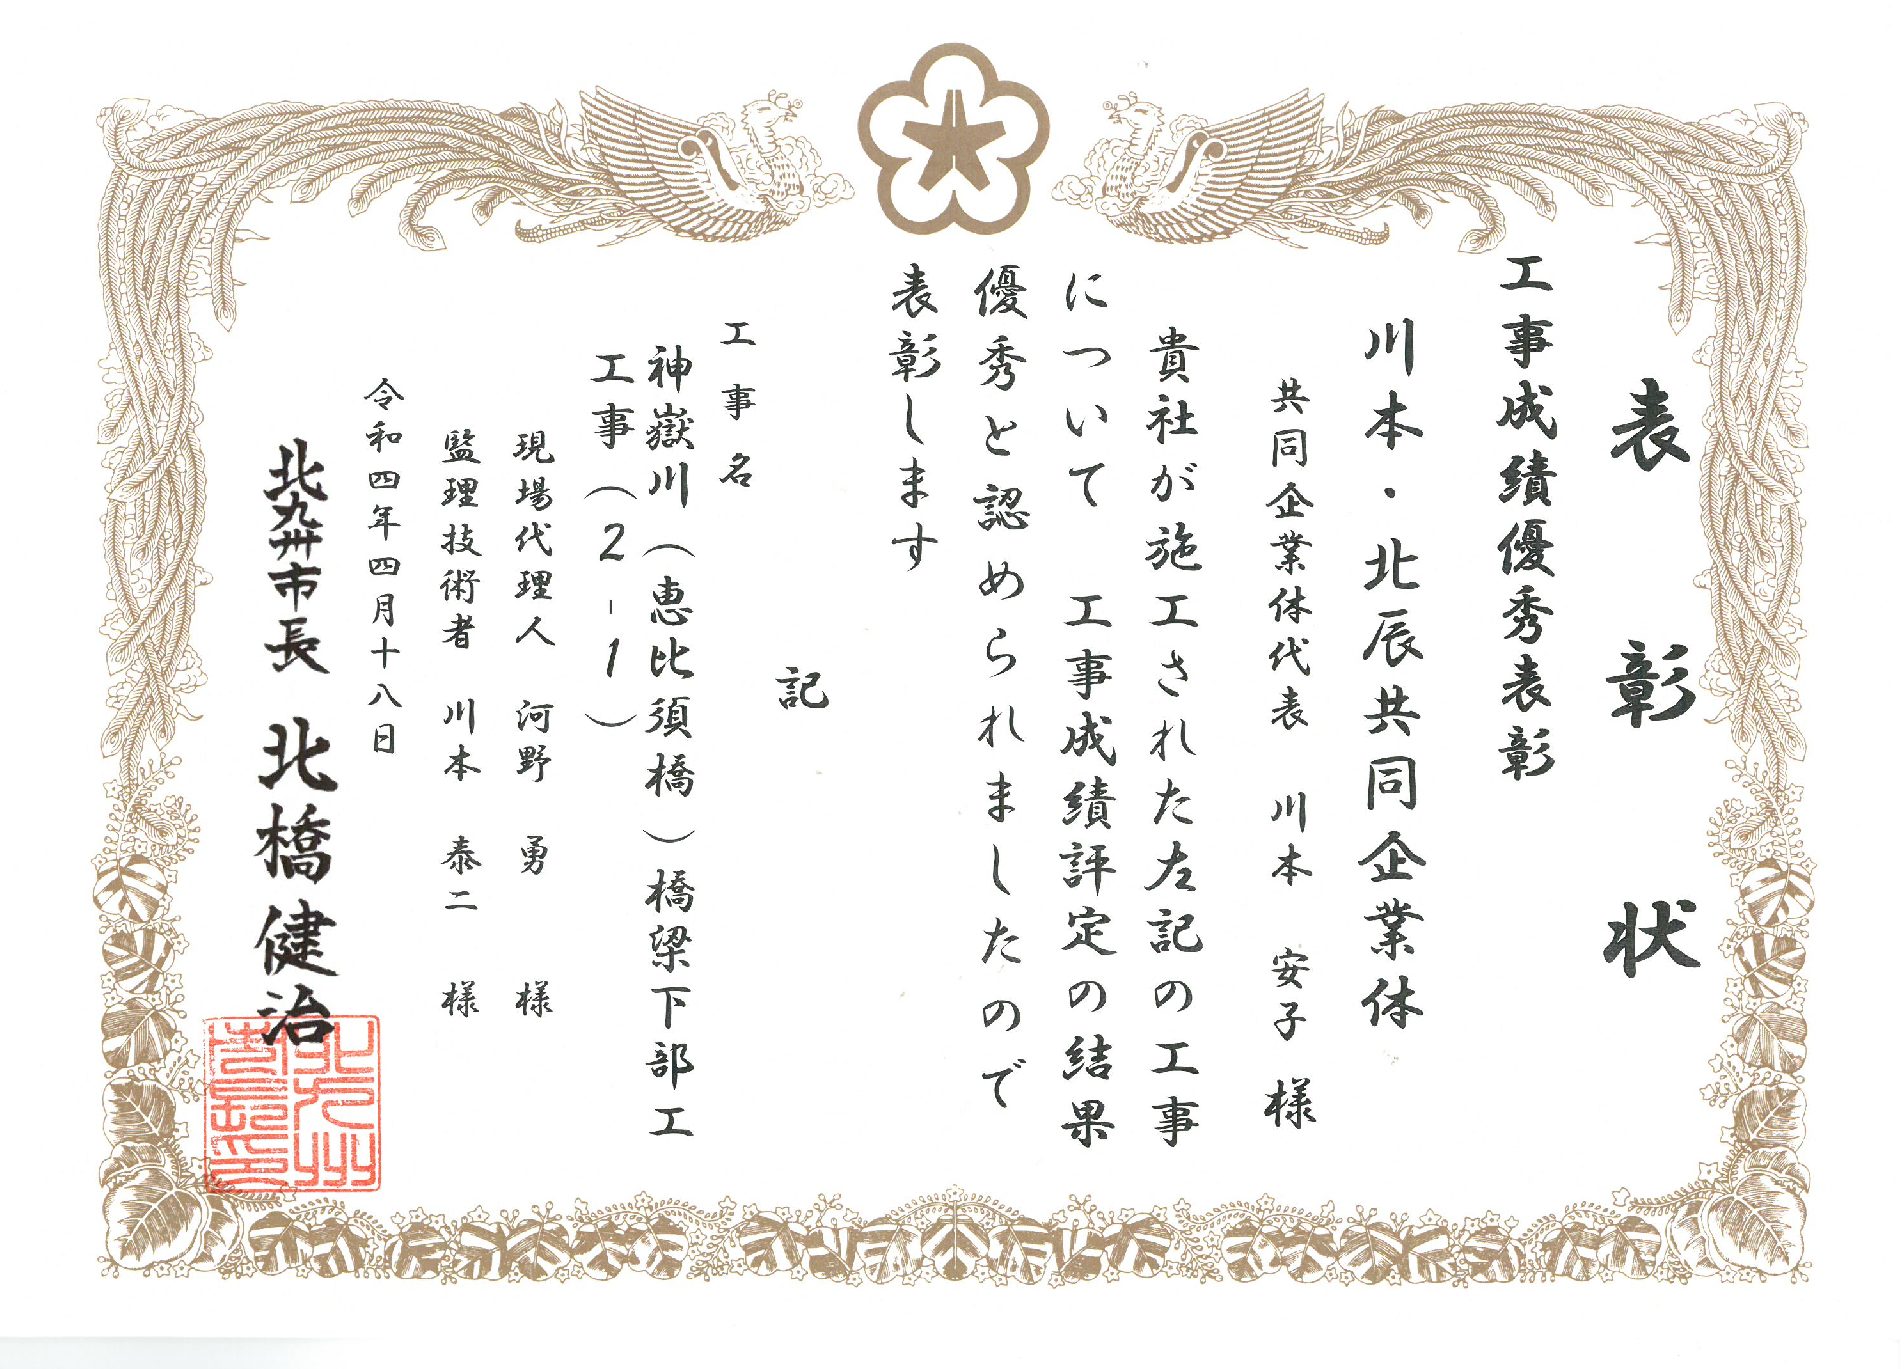 表彰状
工事成績優秀表彰
川本・北辰共同企業体
共同企業体代表　川本　安子　様
貴社が施工された左記の工事
について　工事成績評定の結果
優秀と認められましたので
表彰します
記
工事名
神嶽川（恵比須橋）橋梁下部工
工事（2-1）
現場代理人　河野　勇　様
監理技術者　川本　泰二　様
令和四年四月十八日
北九州市長　北橋健治
北九州市長印